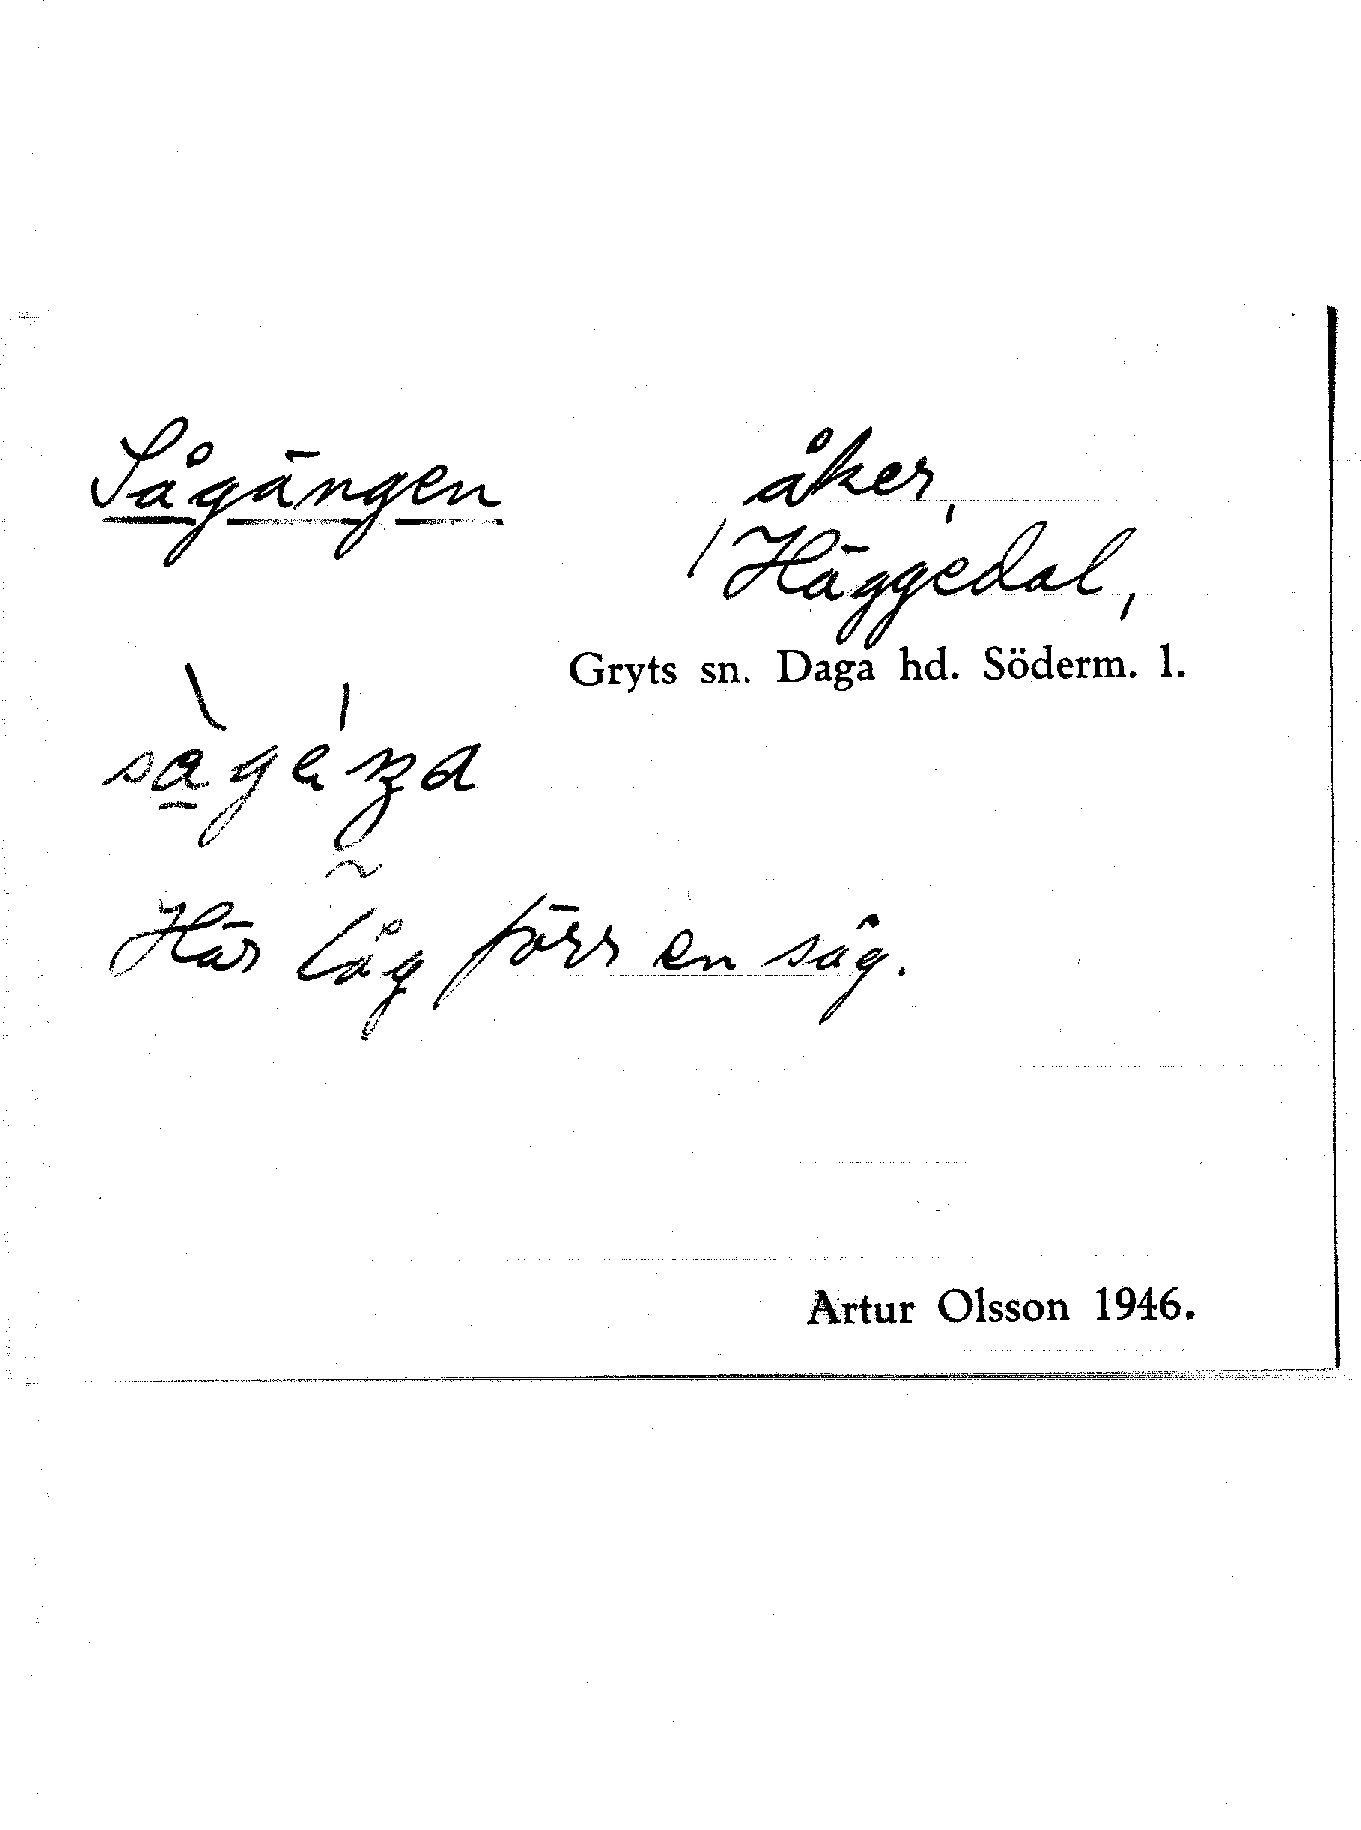 Sågängen
åker,
Häggedal,
Gryts sn. Daga hd. Söderm. l.
Här låg förr en såg.
Artur Olsson 1946.